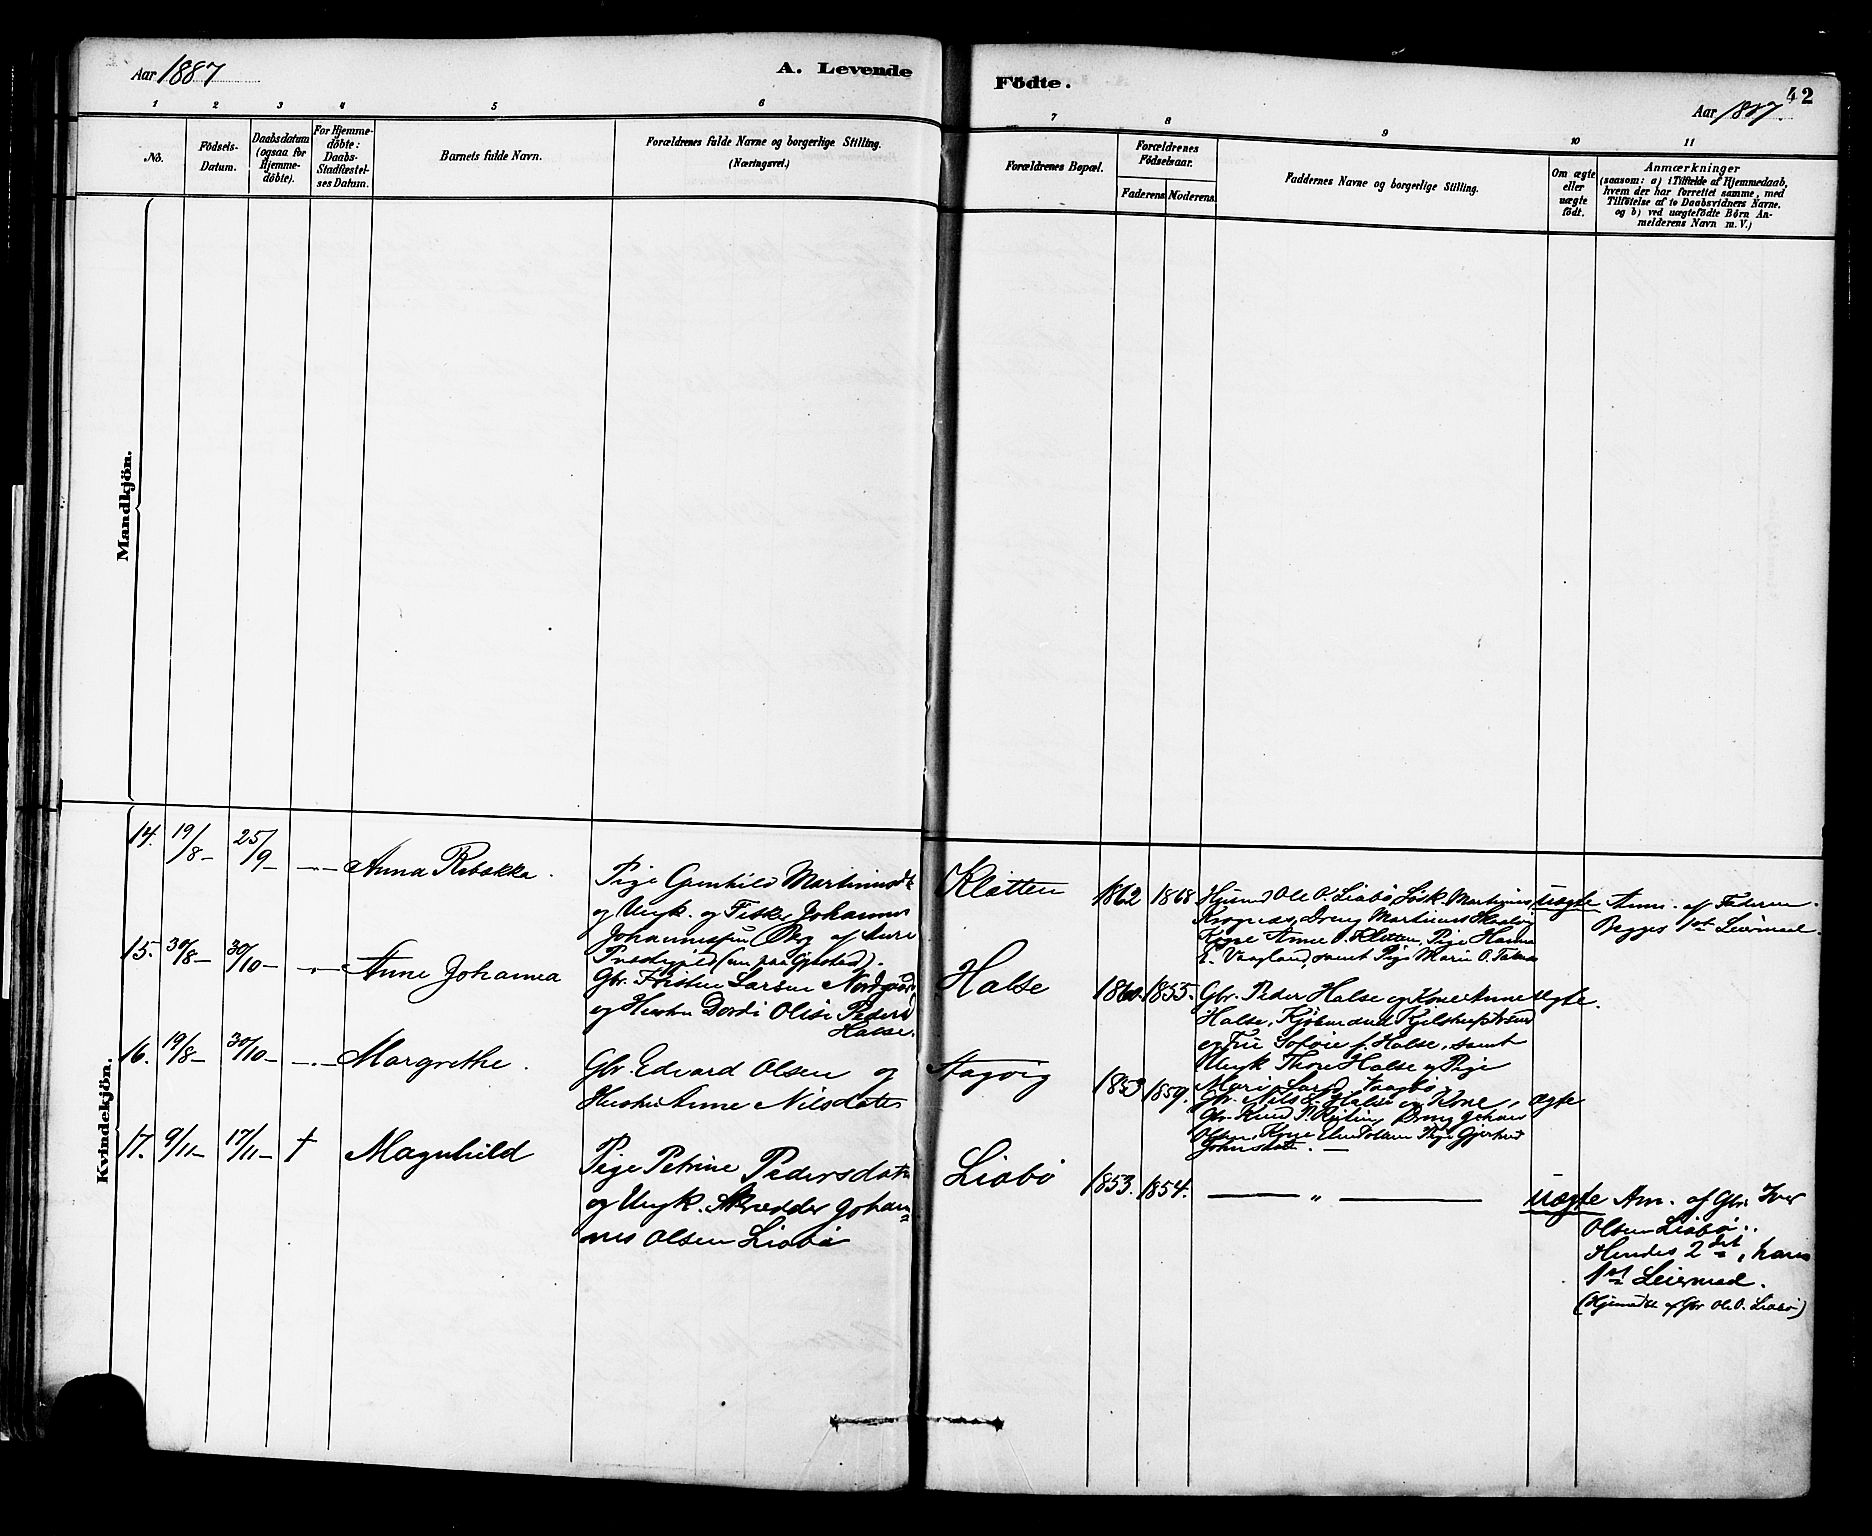 Aar 1887
A. Levende
Födte.
42
Aar 1887.
1
2
3
4
5
6
7
8
9
10
11
No.
Födsels-
Datum.
Daabsdatum
(ogsaa for
Hjemme-
döbte).
For Hjemme-
döbte:
Daabs-
Stadfæstel-
ses Datum.
Barnets fulde Navn.
Forældrenes fulde Navne og borgerlige Stilling.
(Næringsvei.)
Forældrenes Bopæl.
Forældrenes
Födselsaar.
Faderens
Moderens
Faddernes Navne og borgerlige Stilling.
Om ægte
eller
uægte
födt.
Anmærkninger
(saasom: a) i Tilfælde af Hjemmedaab,
hvem der har forrettet samme, med
Tilføielse af to Daabsvidners Navne.
og b) ved uægtefödte Börn An-
melderens Navn m. V.)
Mandkjön.
Kvindekjön.
14. 19/8 – 25/9 – Anna Rebekka.
Pige Gunhild Martinusdt
og Ungk. og Fisker Johannes
Johannessen af Aure
Præstegjeld
Kletten 1862 1868
Husmd Ole O. Liabö, Martinus
Krognæs, Dreng Martinus
Kone Anne O. Kletten, Pige Hanna
E. Vaagland, samt Pige Marie O.
uægte
Anm. af Faderen.
Begges 1st Leiermaal.
15. 30/8 – 30/10 – Anne Johanna
Gbr. Larsen
og Hustru Dordi Olise Peders
Halse.
Halse 1860. 1855.
Gbr. Peder Halse og Kone Anne
Halse, Kjöbmand
og Fru f. Halse, samt
Ungk Thore Halse og Pige
Mari Larsd. Vaagbö
ægte.
16. 19/8 – 30/10 – Margrethe.
Gbr. Edvard Olsen og
Hustru Anne Nilsdatter
Aagvig 1853 1859.
Gbr. Nils L. Halse og Kone,
Gbr. Knud Dreng Johan
Olsen, Kone Pige
Johnsdat. –
ægte
17. 9/11 – 17/11 – † Magnhild
Pige Petrine Pedersdatr
og Ungk. Skrædder Johan-
nes Olsen Liabö
Liabö 1853. 1854.
— " —
uægte
Anm. af Gbr. Iver
Olsen Liabö.
Hendes 2det, hans
1st Leiermaal.
(Hjemdbt af Gbr Ole O. Liabö)